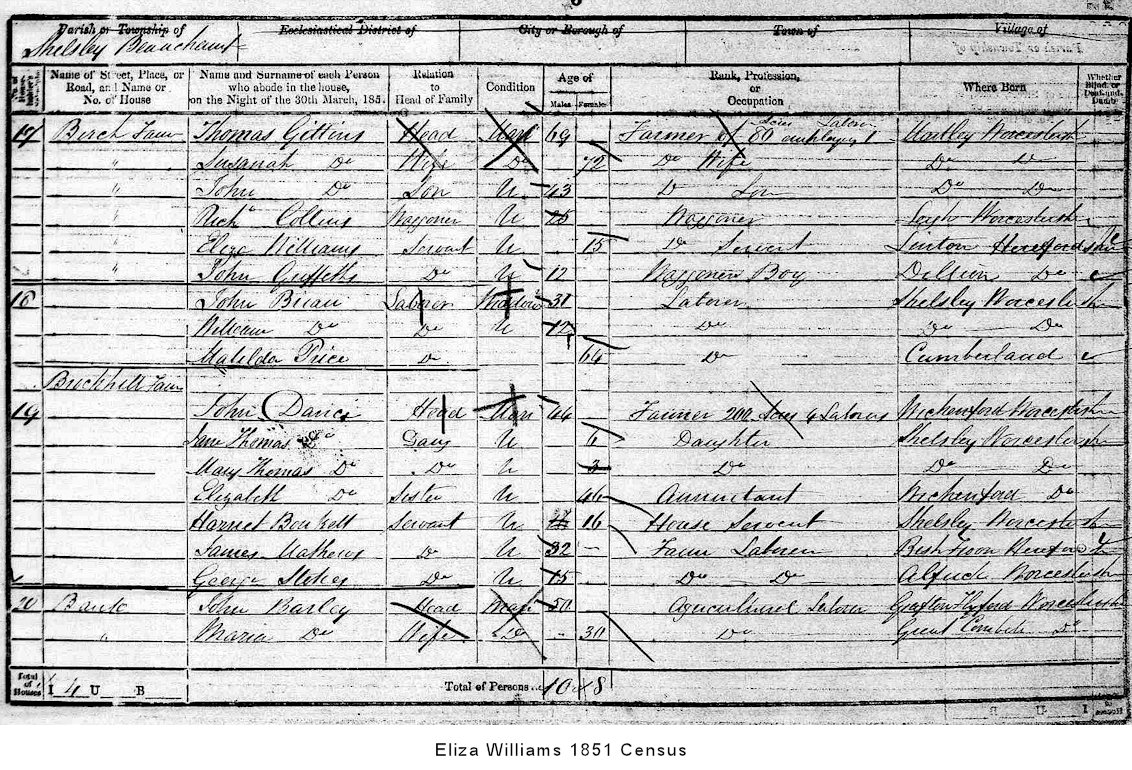 Parish or Township of Ecclesiastical District of City or Borough of Town of Village of
Shelsley Beauchamp
Name of Street, Place, or Road, and Name or No. of House
Name and Surname of each Person who abode in the house, on the Night of the 30th March, 185
Relation to Head of Family
Condition
Age of
Males Females
Rank, Profession, or Occupation
Where Born
Whether Blind, or Deaf-and-Dumb
17 Birch Farm Thomas Gittins Head Mar 69 Farmer of 80 Acres employing 1 Labor Martley Worcestersh
" Susanah Do Wife Do 72 Do Wife Do Do
" John Do Son U 43 Do Son Do Do
" Richd Collins Waggoner U 25 Waggoner Leigh Worcestersh
" Eliza Williams Servant U 15 Do Servent Linton Herefordshire
" John Griffiths Do U 12 Waggoners Boy Do
18 John Laborer 31 Labourer Shelsley Worcestersh
William Do Do U 12 Do Do Do
Matilda Price 64 Do Cumberland
Farm
19 John Davies Head Mar 44 Farmer 200 Acres 4 Labores Wichenford Worcestersh
Jane Thomas Do Daug U 6 Daughter Shelsley Worcestersh
Mary Thomas Do Do U 3 Do Do Do
Elizabeth Do Sister U 46 Anuuitant Wichenford Do
Harriet Servant U 16 House Servent Shelsley Worcestersh
James Mathews Do U 32 - Farm Laborer
George Stokes Do U 15 Do Do Alfrick Worcestersh
20 John Barley Head Mar 50 Agricultural Laborer Worcestersh
" Maria Do Wife Do - 30 Do Great Do
Total of Houses I 4 U B Total of Persons 10 8
Eliza Williams 1851 Census